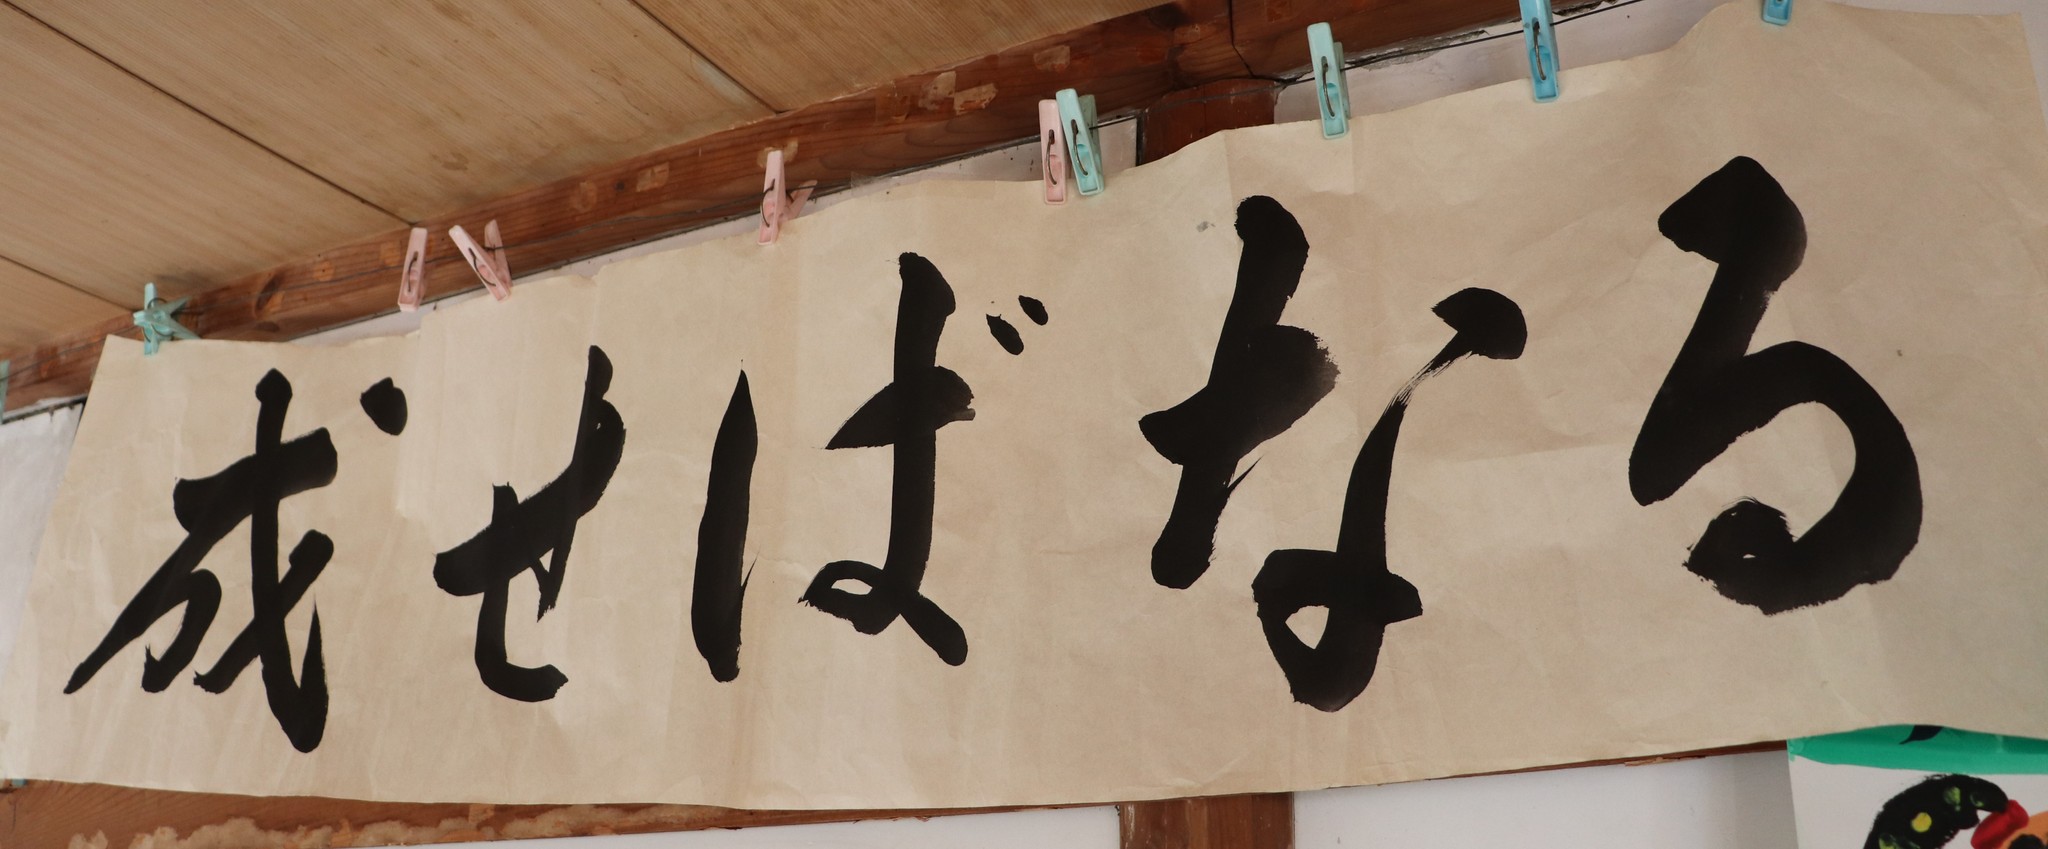 成せばなる